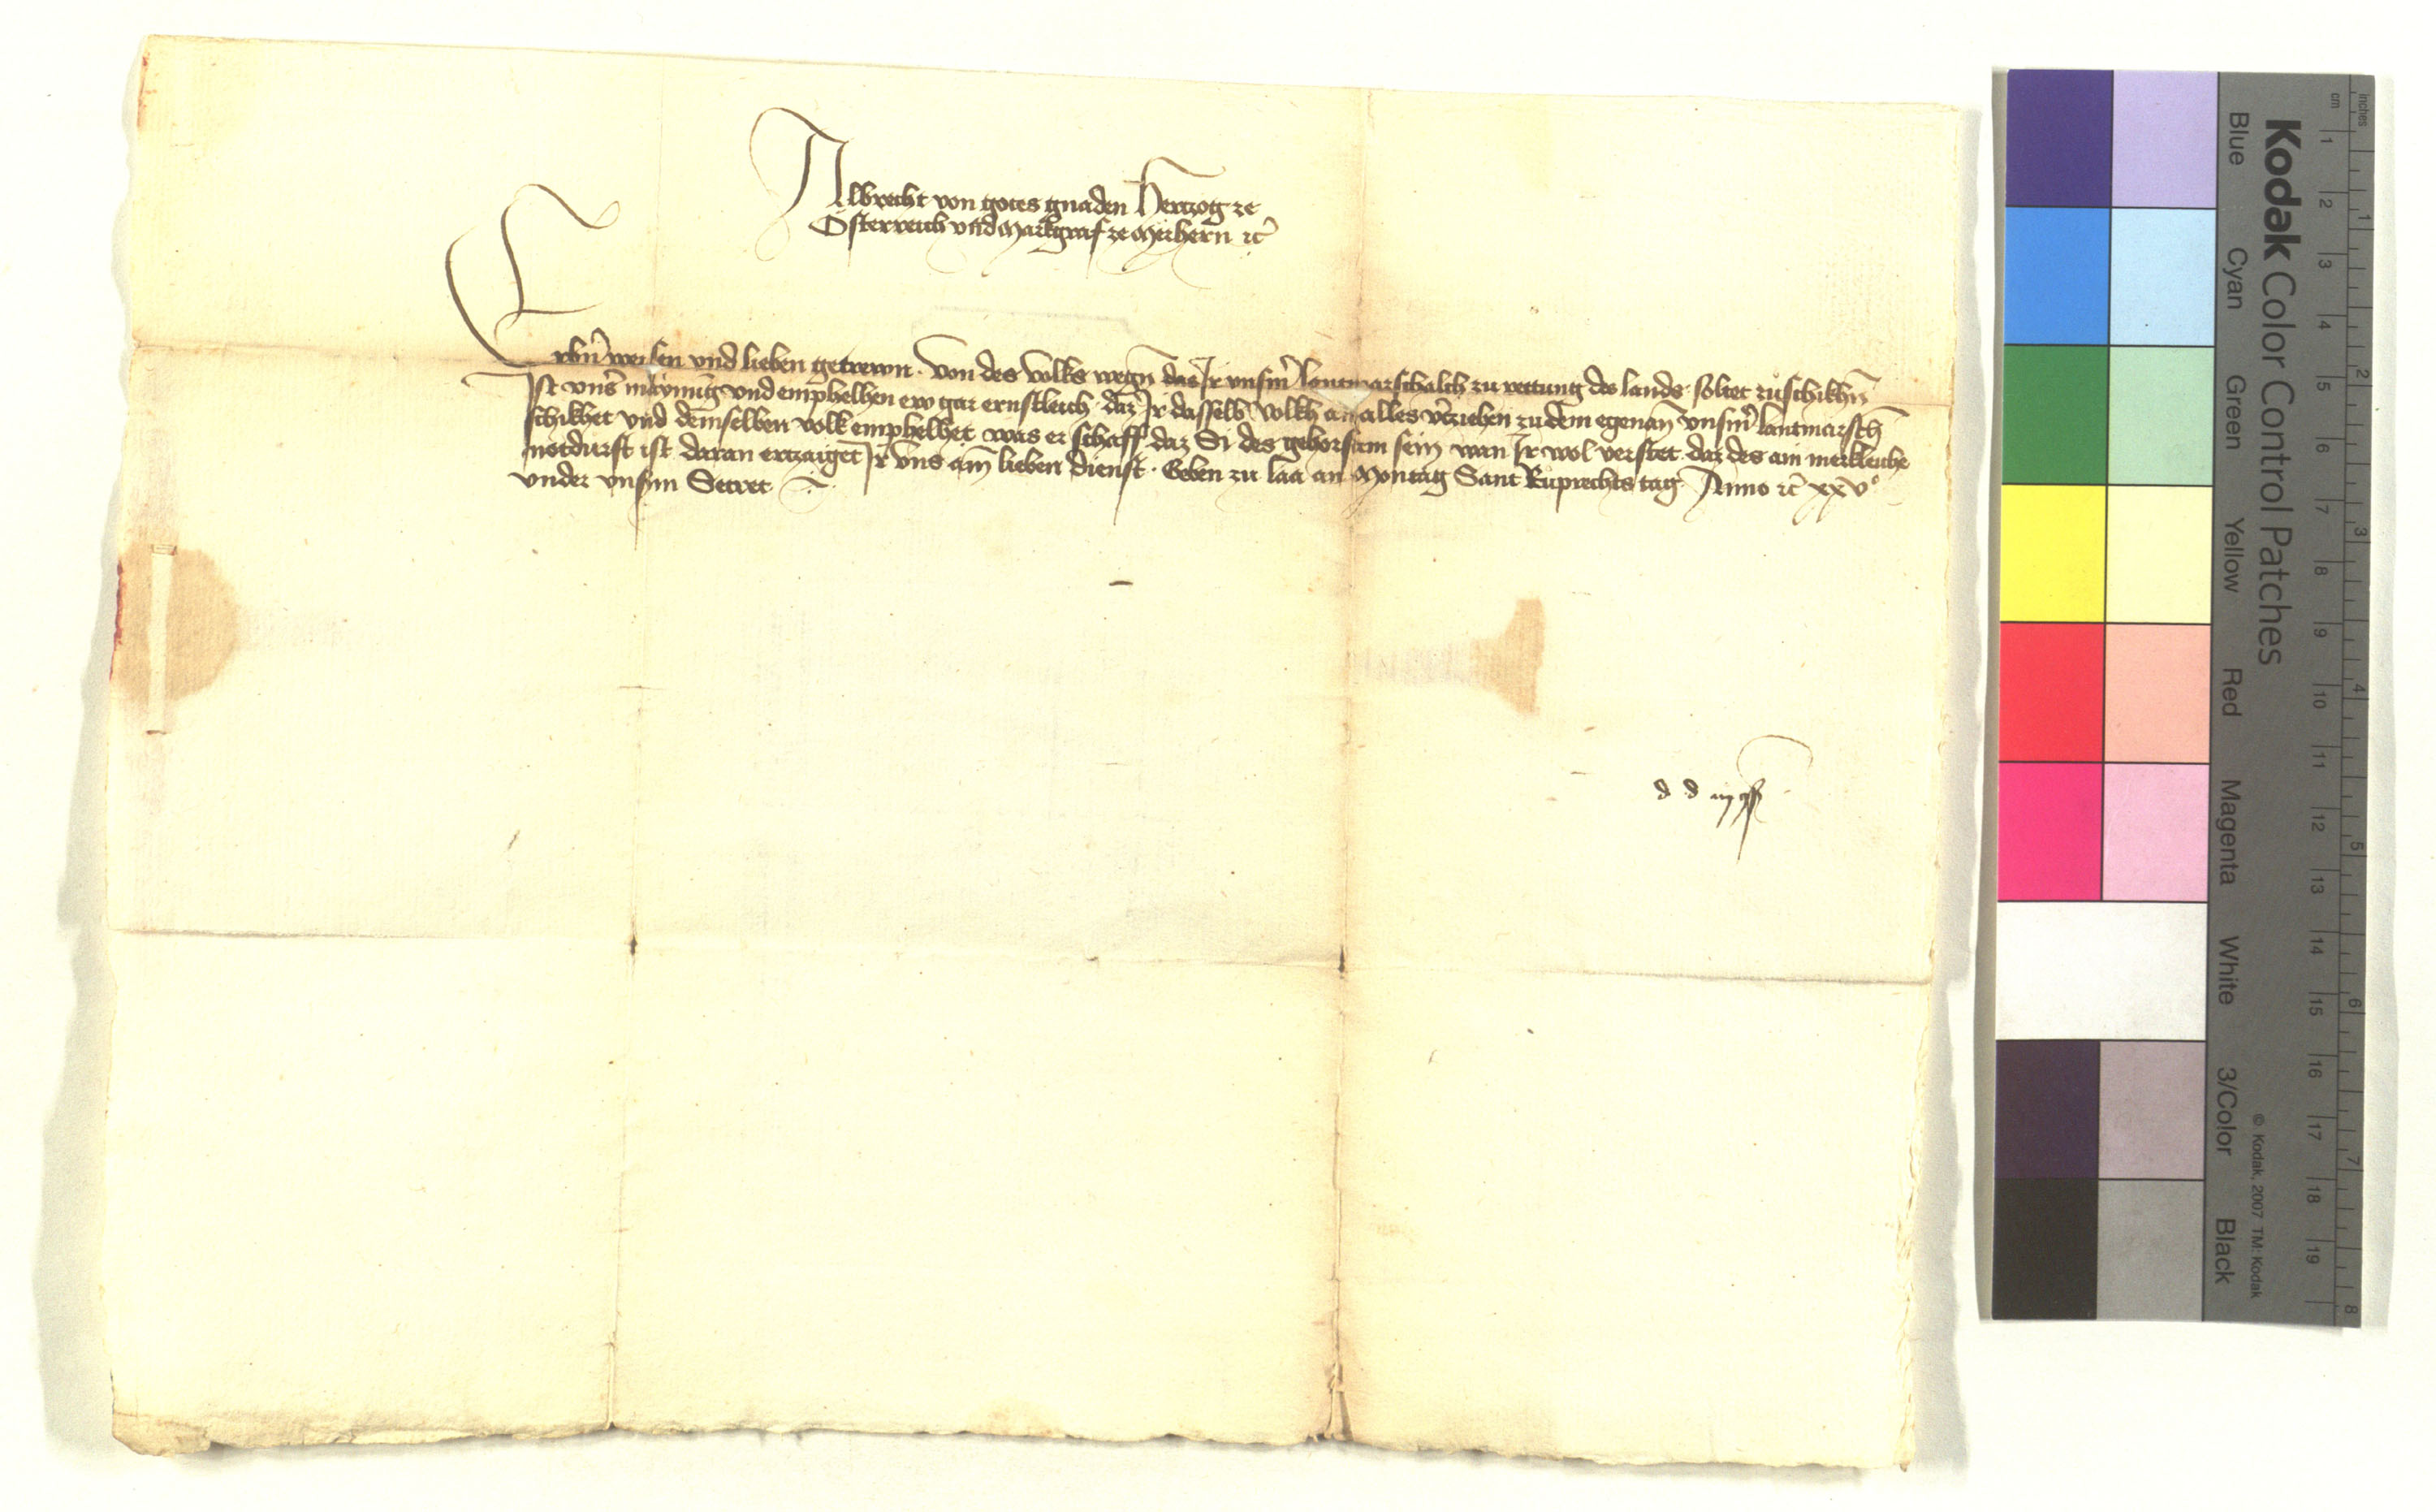 Albrecht von gotes gnaden Hertzog ze
Österreich und Markgraf ze Merhern ꝛc̃
Erbn̄ weisen und lieben getrewn. Von des Volks wegn̄ das Ir unsm̄ lantmarschalch zu rettung des lands soltet zůschikhn̄
Ist uns̄ maynūg und emphelhen ew gar ernstleich daz Ir dasselb Volkh an alles v̄cziehen zu dem egenan̄ unsm̄ lantmarsch̄
schikhet und demselben volk emphelhet was er schaff daz Si des gehorsam sein wan Ir wol verstet daz des ain merkleiche
notdurft ist daran ertzaiget Ir uns ain̄ lieben dienst. Geben zu laa an Montag Sant Ruprechts tag Anno ꝛc̃ xxvº
under unsm̄ Secret
d d in
Kodak Color Control Patches
Blue Cyan Green Yellow Red Magenta White 3/Color Black
© Kodak, 2007 TM: Kodak
inches 1 2 3 4 5 6 7 8
cm 1 2 3 4 5 6 7 8 9 10 11 12 13 14 15 16 17 18 19